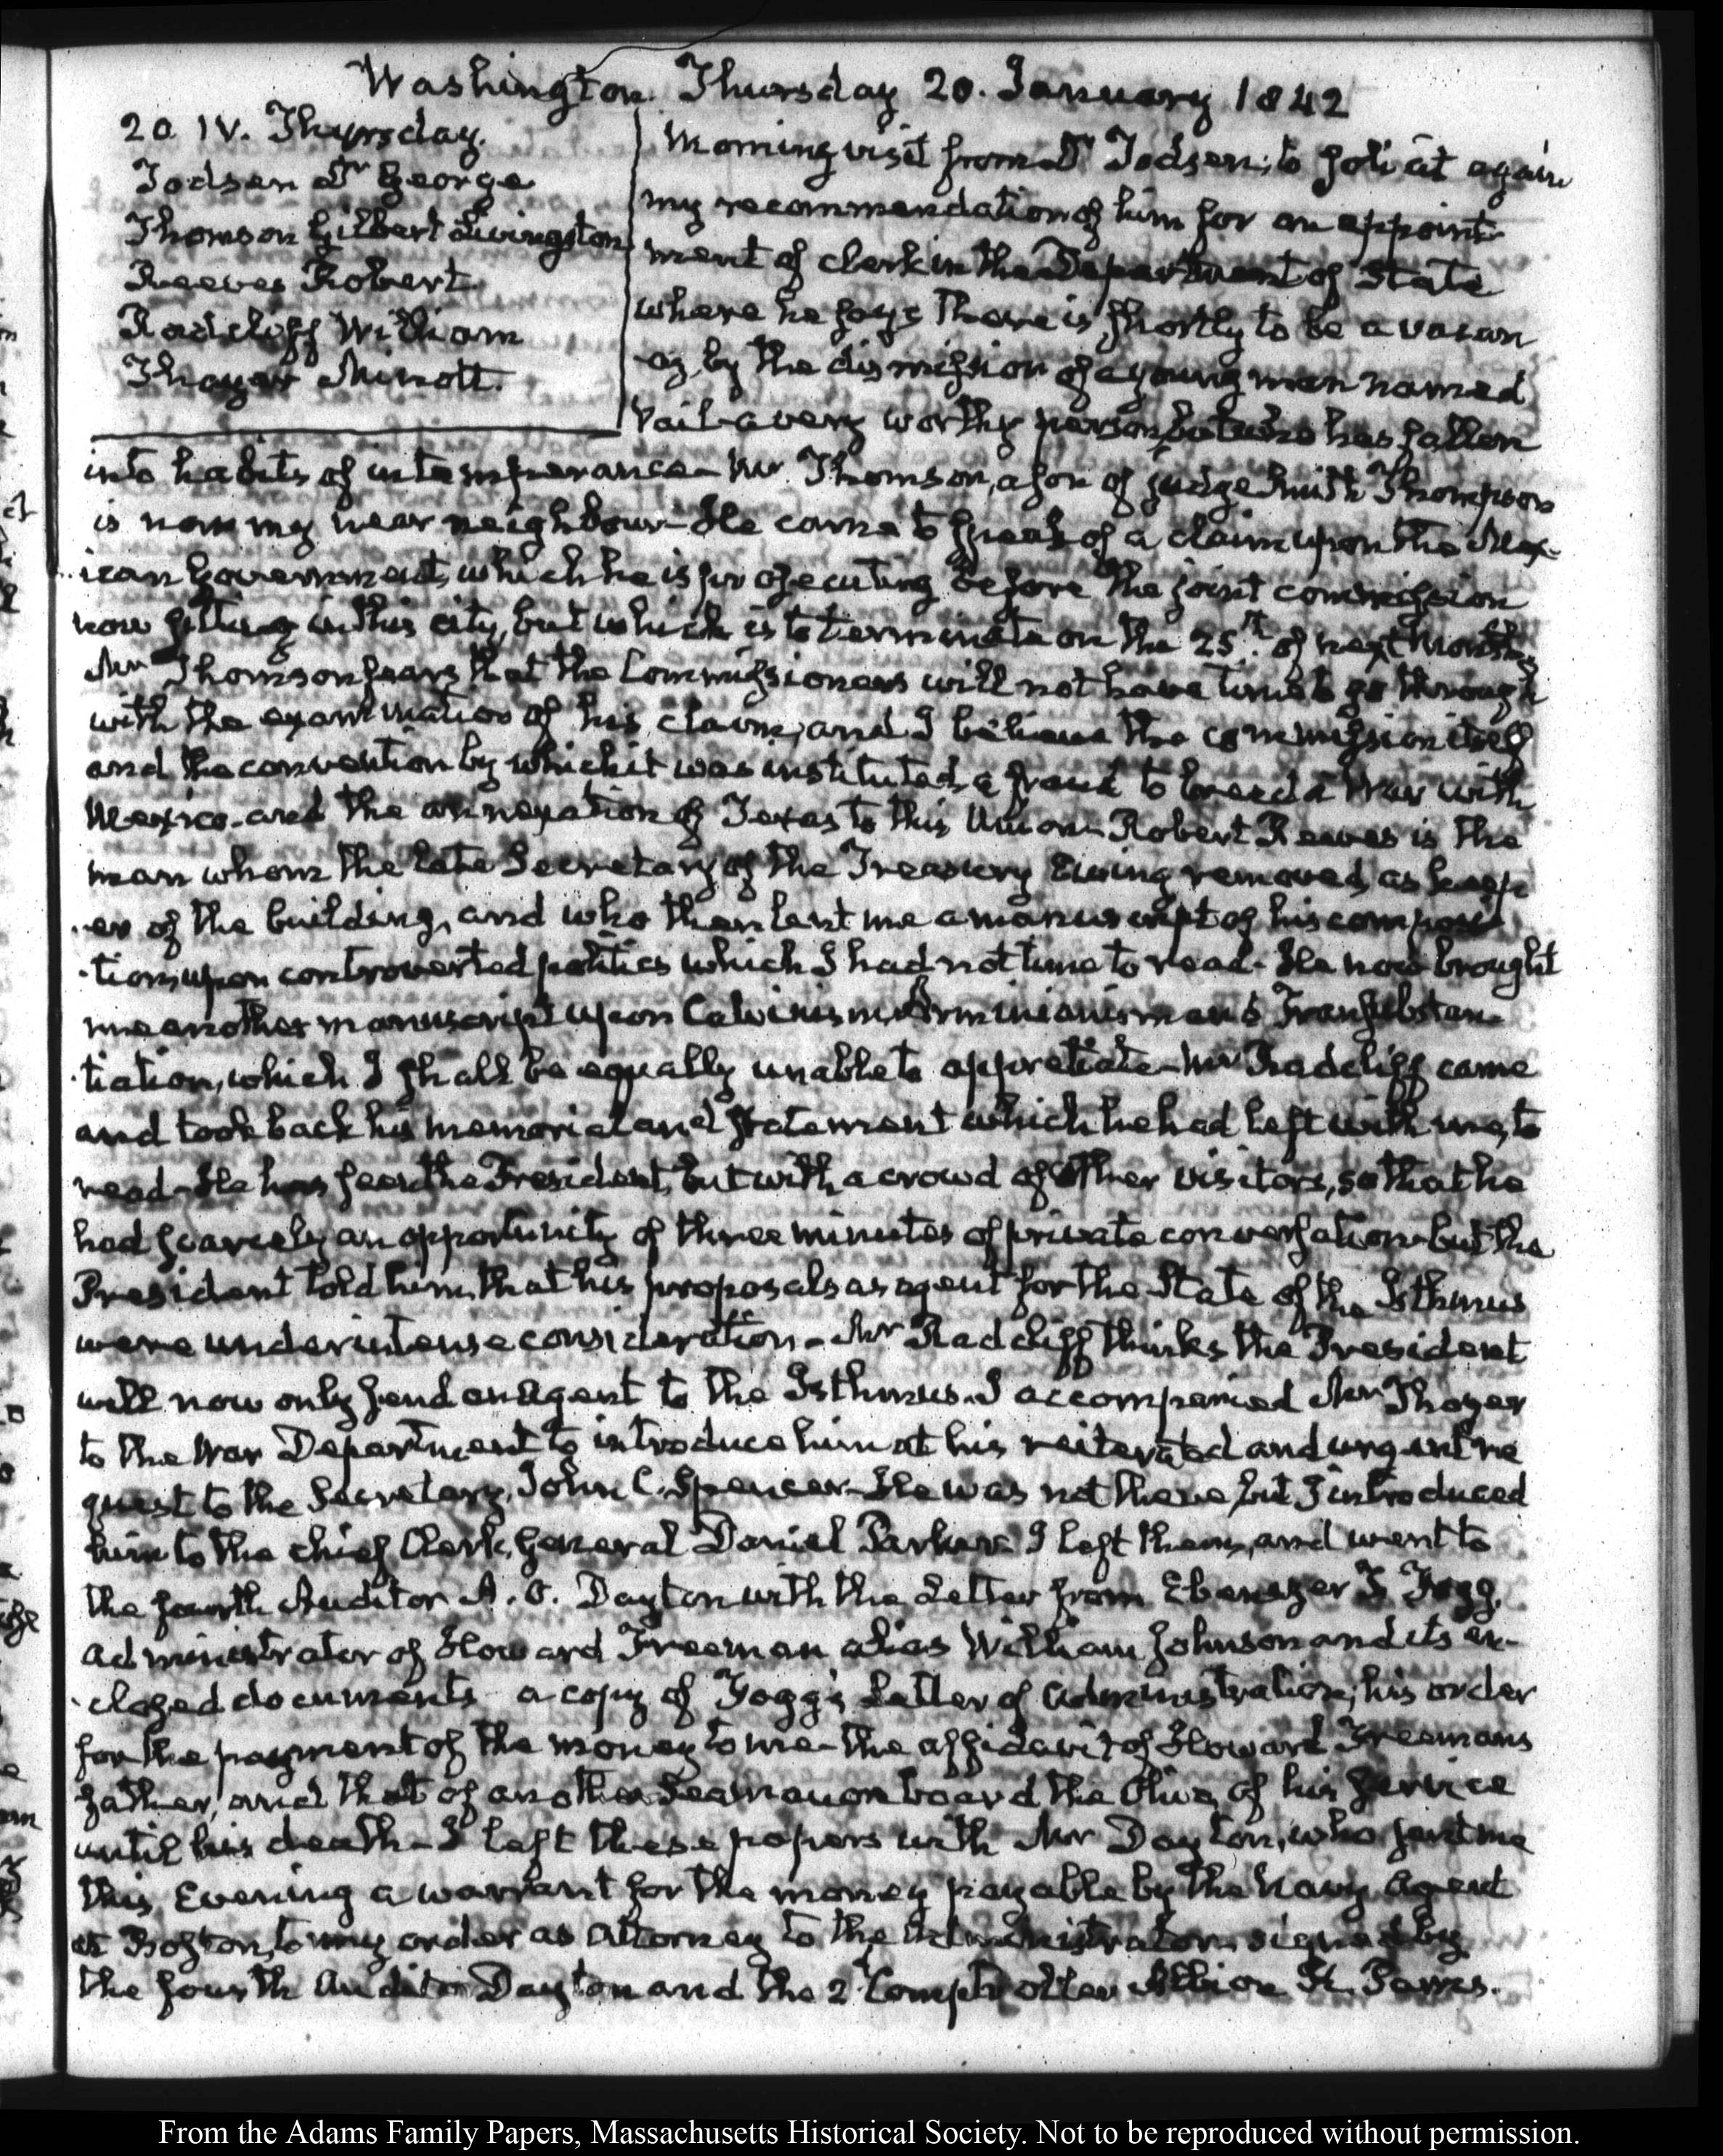 Washington Thursday 20. January 1842
20. IV. Thursday.
Todsen Dr George
Thomson Gilbert Livingston
Reeves Robert
Radcliff William
Thayer Minott.
Morning visit from Dr Todsen; to solicit again
my recommendation of him for an appoint-
ment of clerk in the Department of State
where he says there is shortly to be a vacan
-cy by the dismission of a young man named
Vail a very worthy person, but who has fallen
into habits of intemperance— Mr Thomson, a son of judge Smith Thompson
is now my near neighbour— He came to speak of a claim upon the Mex-
-ican Government, which he is prosecuting before the joint commission
now sitting in this city, but which is to terminate on the 25th. of next Month.
Mr Thomson fears that the Commissioners will not have time to go through
with the examination of his claim, and I believe the commission itself
and the convention by which it was instituted, a fraud to breed a War with
Mexico— and the annexation of Texas to this Union— Robert Reeves is the
man whom the late Secretary of the Treasury Ewing removed, as keep
-er of the building, and who then lent me a manuscript of his composi
-tion, upon controverted politics which I had not time to read— He now brought
me another manuscript upon Calvinism, Arminianism and Transubstan-
-tiation, which I shall be equally unable to appretiate— Mr Radcliff came
and took back his memorial and statement which he had left with me, to
read— He has seen the President, but with a crowd of other visitors, so that he
had scarcely an opportunity of three minutes of private conversation— but the
President told him, that his proposals as agent for the State of the Isthmus
were under intense consideration— Mr Radcliff thinks the President
will now only send an Agent to the Isthmus. I accompanied Mr Thayer
to the War Department to introduce him at his reiterated and urgent re
quest to the Secretary, John C. Spencer— He was not there, but I introduced
him to the chief Clerk, General Daniel Parker. I left them, and went to
the fourth Auditor A. O. Dayton with the Letter from Ebenezer T Fogg,
administrator of Howard Freeman alias William Johnson and its en-
-closed documents a copy of Fogg's Letter of administration; his order
for the payment of the money to me— the affidavit of Howard Freemans
father, and that of another Seaman on board the Ohio, of his service
until his death— I left these papers with Mr Dayton, who sent me
this Evening a warrant for the money payable by the Navy Agent
at Boston, to my order as Attorney to the Administrator signed by
the fourth Auditor Dayton and the 2d Comptroller Albion K. Parris.
From the Adams Family Papers, Massachusetts Historical Society. Not to be reproduced without permission.